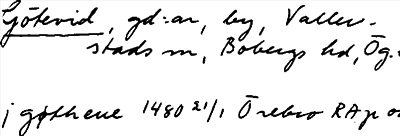 Götevid, gd:ar, by, Valler-
stads sn, Bobergs hd, Ög.
j gøtheue 1480 21/1 Örebro RAp or